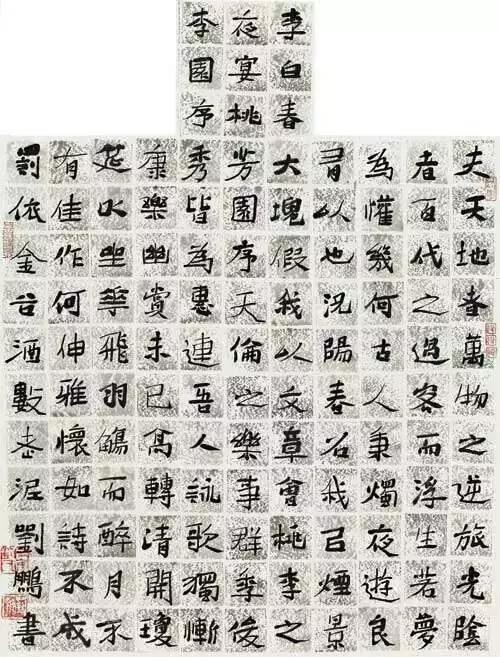 李白春
夜宴桃
李園序
夫天地者萬物之逆旅光陰
者百代之過客而浮生若夢
為懽幾何古人秉燭夜遊良
有以也況陽春召我以煙景
大塊假我以文章會桃李之
芳園序天倫之樂事群季俊
秀皆為惠連吾人詠歌獨慚
康樂幽賞未已高轉清開瓊
延以坐華飛羽觴而醉月不
有佳作何伸雅懷如詩不成
罰依金谷酒數志泥劉鵬書